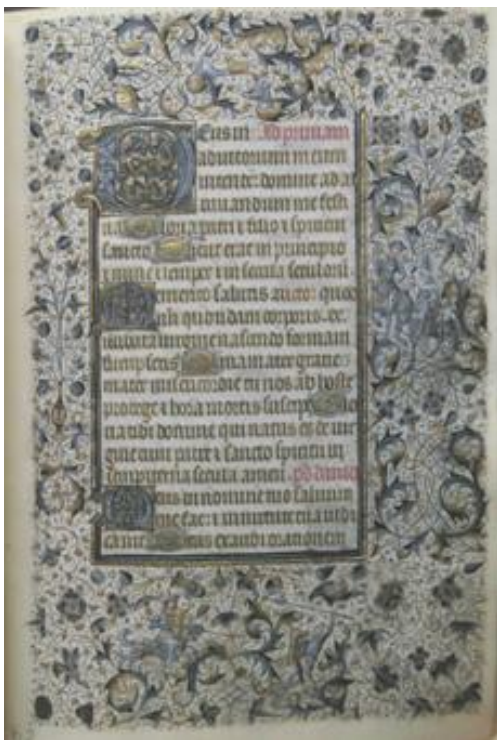 Deus in Ad primam
adiutorium meum
intende. domine ad ad
iuuandum me festi
na Gloria patri & filio & spiritui
sancto Sicut erat in principio
& nunc & semper & in secula seculorū
Memento salutis auctor quod
quondam corporis. ex
illibata virgine nascendo formam
sumpseris Maria mater gracie
mater misericordie tu nos ab hoste
protege & hora mortis suscipe Glo
ria tibi domine qui natus es de vir
gine cum patre & sancto spiritu in
sempiterna secula amen.
Deus in nomine tuo saluum
me fac: & in virtute tua iudi
ca me Deus exaudi orationem